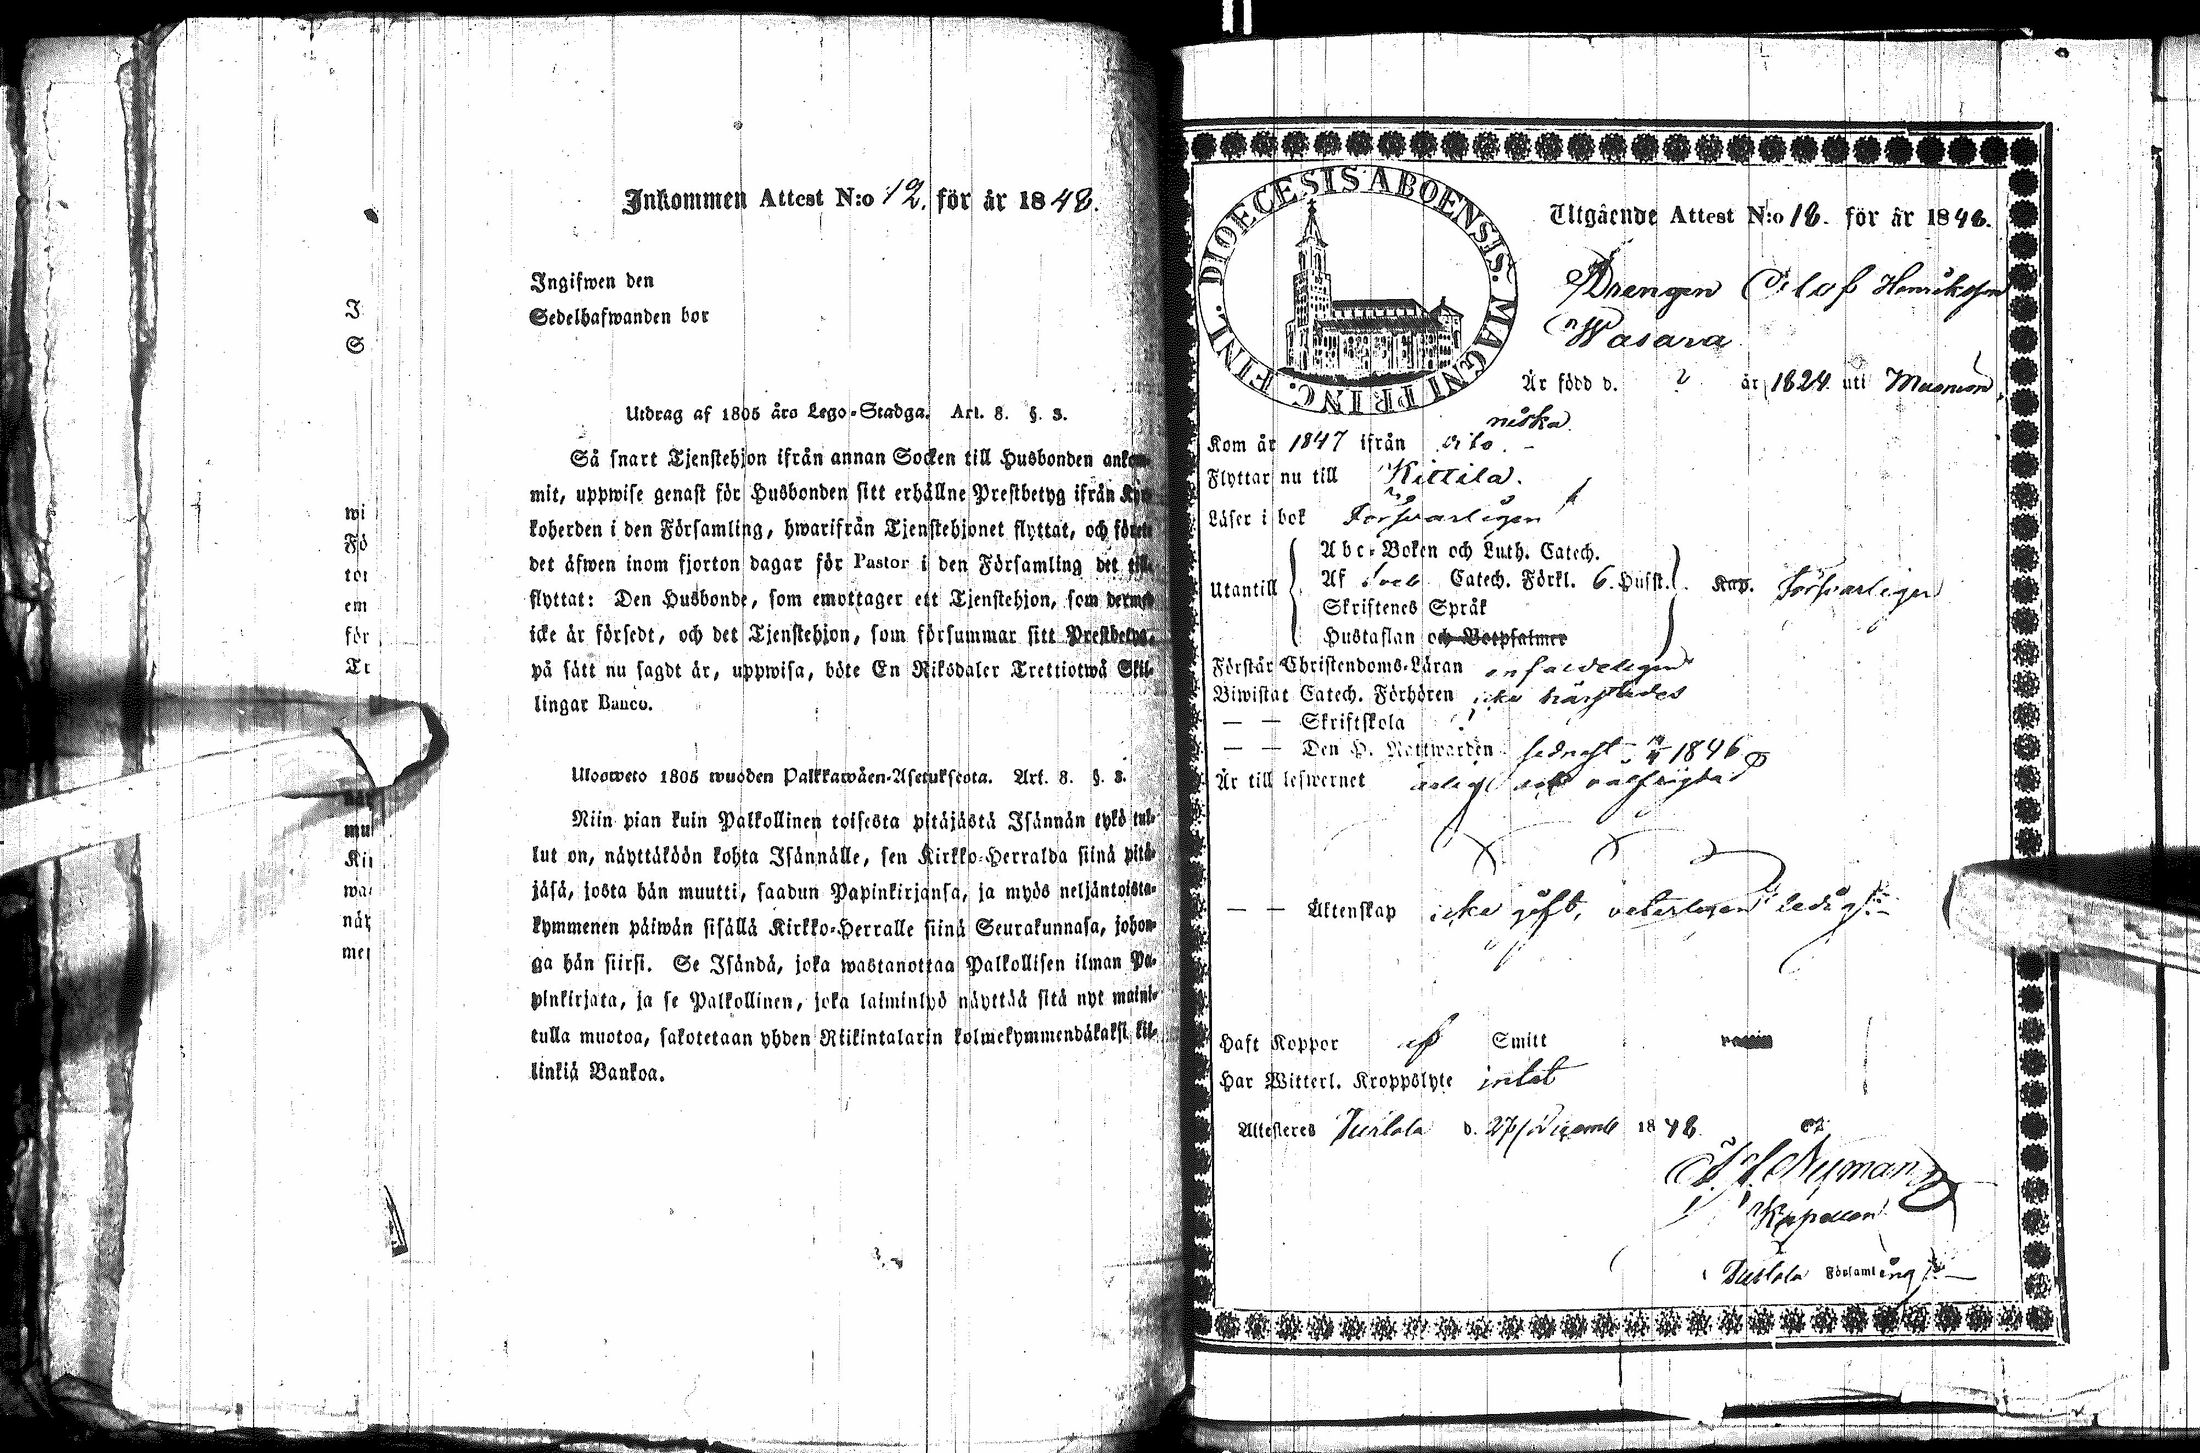 Inkommen Attest N:o 12. för år 1848.
Ingifwen den
Sedelhafwanden bor
Utdrag af 1805 års Lego-Stadga. Art. 8. §. 3.
Så snart Tjenstehjon ifrån annan Socken till Husbonden ankom-
mit, uppwise genast för Husbonden sitt erhållne Prestbetyg ifrån Kyr-
koherden i den Församling, hwarifrån Tjenstehjonet flyttat, och förete
det äfwen inom fjorton dagar för Pastor i den Församling det till-
flyttat: Den Husbonde, som emottager ett Tjenstehjon, som dermed
icke är försedt, och det Tjenstehjon, som försummar sitt Prestbetyg,
på sätt nu sagdt är, uppwisa, böte En Riksdaler Trettiotwå Skil-
lingar Banco.
Ulosweto 1805 wuoden Palkkawäen-Asetuksesta. Art. 8. §. 3.
Niin pian kuin Palkollinen toisesta pitäjästä Isännän tykö tul-
lut on, näyttäköön kohta Isännälle, sen Kirkko-Herralda siinä pitä-
jäsä, josta hän muutti, saadun Papinkirjansa, ja myös neljäntoista-
kymmenen päiwän sisällä Kirkko-Herralle siinä Seurakunnasa, johon-
ga hän siirsi. Se Isändä, joka wastanottaa Palkollisen ilman Pa-
pinkirjata, ja se Palkollinen, joka laiminlyö näyttää sitä nyt maini-
tulla muotoa, sakotetaan yhden Riikintalarin kolmekymmendäkaksi kil-
linkiä Bankoa.
I
S
wi
Fö
tor
em
för
Tr
mu
Kir
wa
näy
mer
DIOECESIS ABOENSIS. MAGNI PRINC. FINL.
Utgående Attest N:o 18. för år 1848.
Drengen Olof Henriksson
Wasara
Är född d. ? år 1824 uti Muonion
niska.
Kom år 1847 ifrån dito.
Flyttar nu till Kittilä.
Läser i bok Försvarligen
Utantill
Abc-Boken och Luth. Catech.
Af Sveb Catech. Förkl. 6. Husst. Kap. Försvarligen
Skriftenes Språk
Hustaflan och Botpsalmer
Förstår Christendoms-Läran enfaldeligen
Biwistat Catech. Förhören icke härstädes
— — Skriftskola
— — Den H. Nattwarden sednast 1846
Är till lefwernet ärlig och välfrejdad
— — Äktenskap icke gift, veterligen ledig
Haft Koppor af Smitt
Har Witterl. Kroppslyte intet
Attesteres Turtola d. 27 Decemb 1848.
Nyman
Kapellan
Turtola Församling